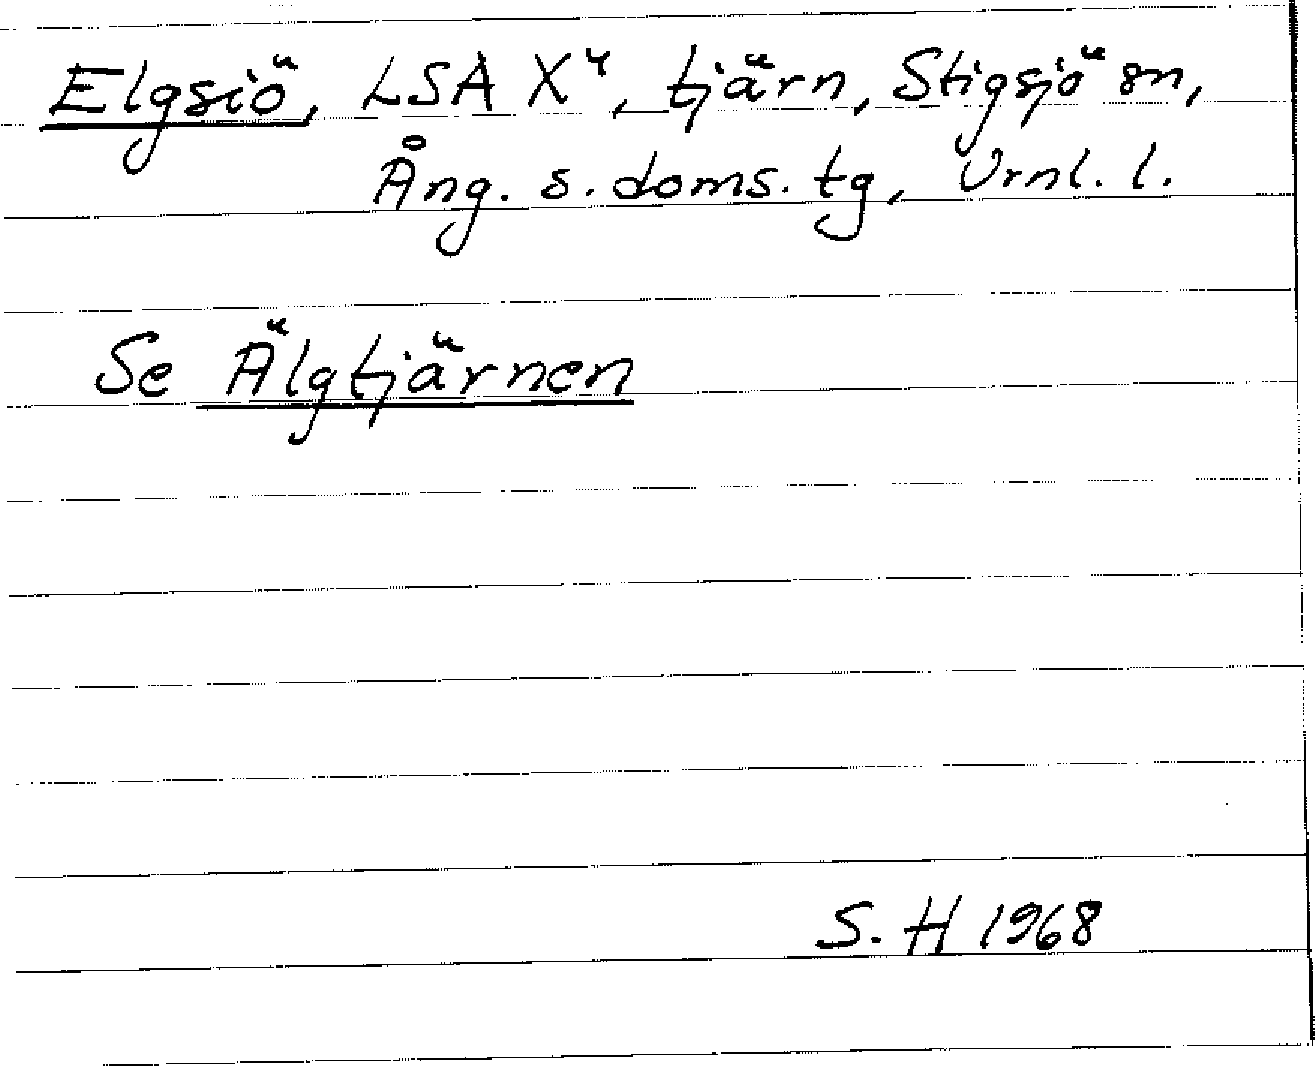 Elgsiö, LSA X⁴, tjärn, Stigsjö sn,
Ång. s. doms. tg, Vrnl. l.
Se Älgtjärnen
S. H 1968